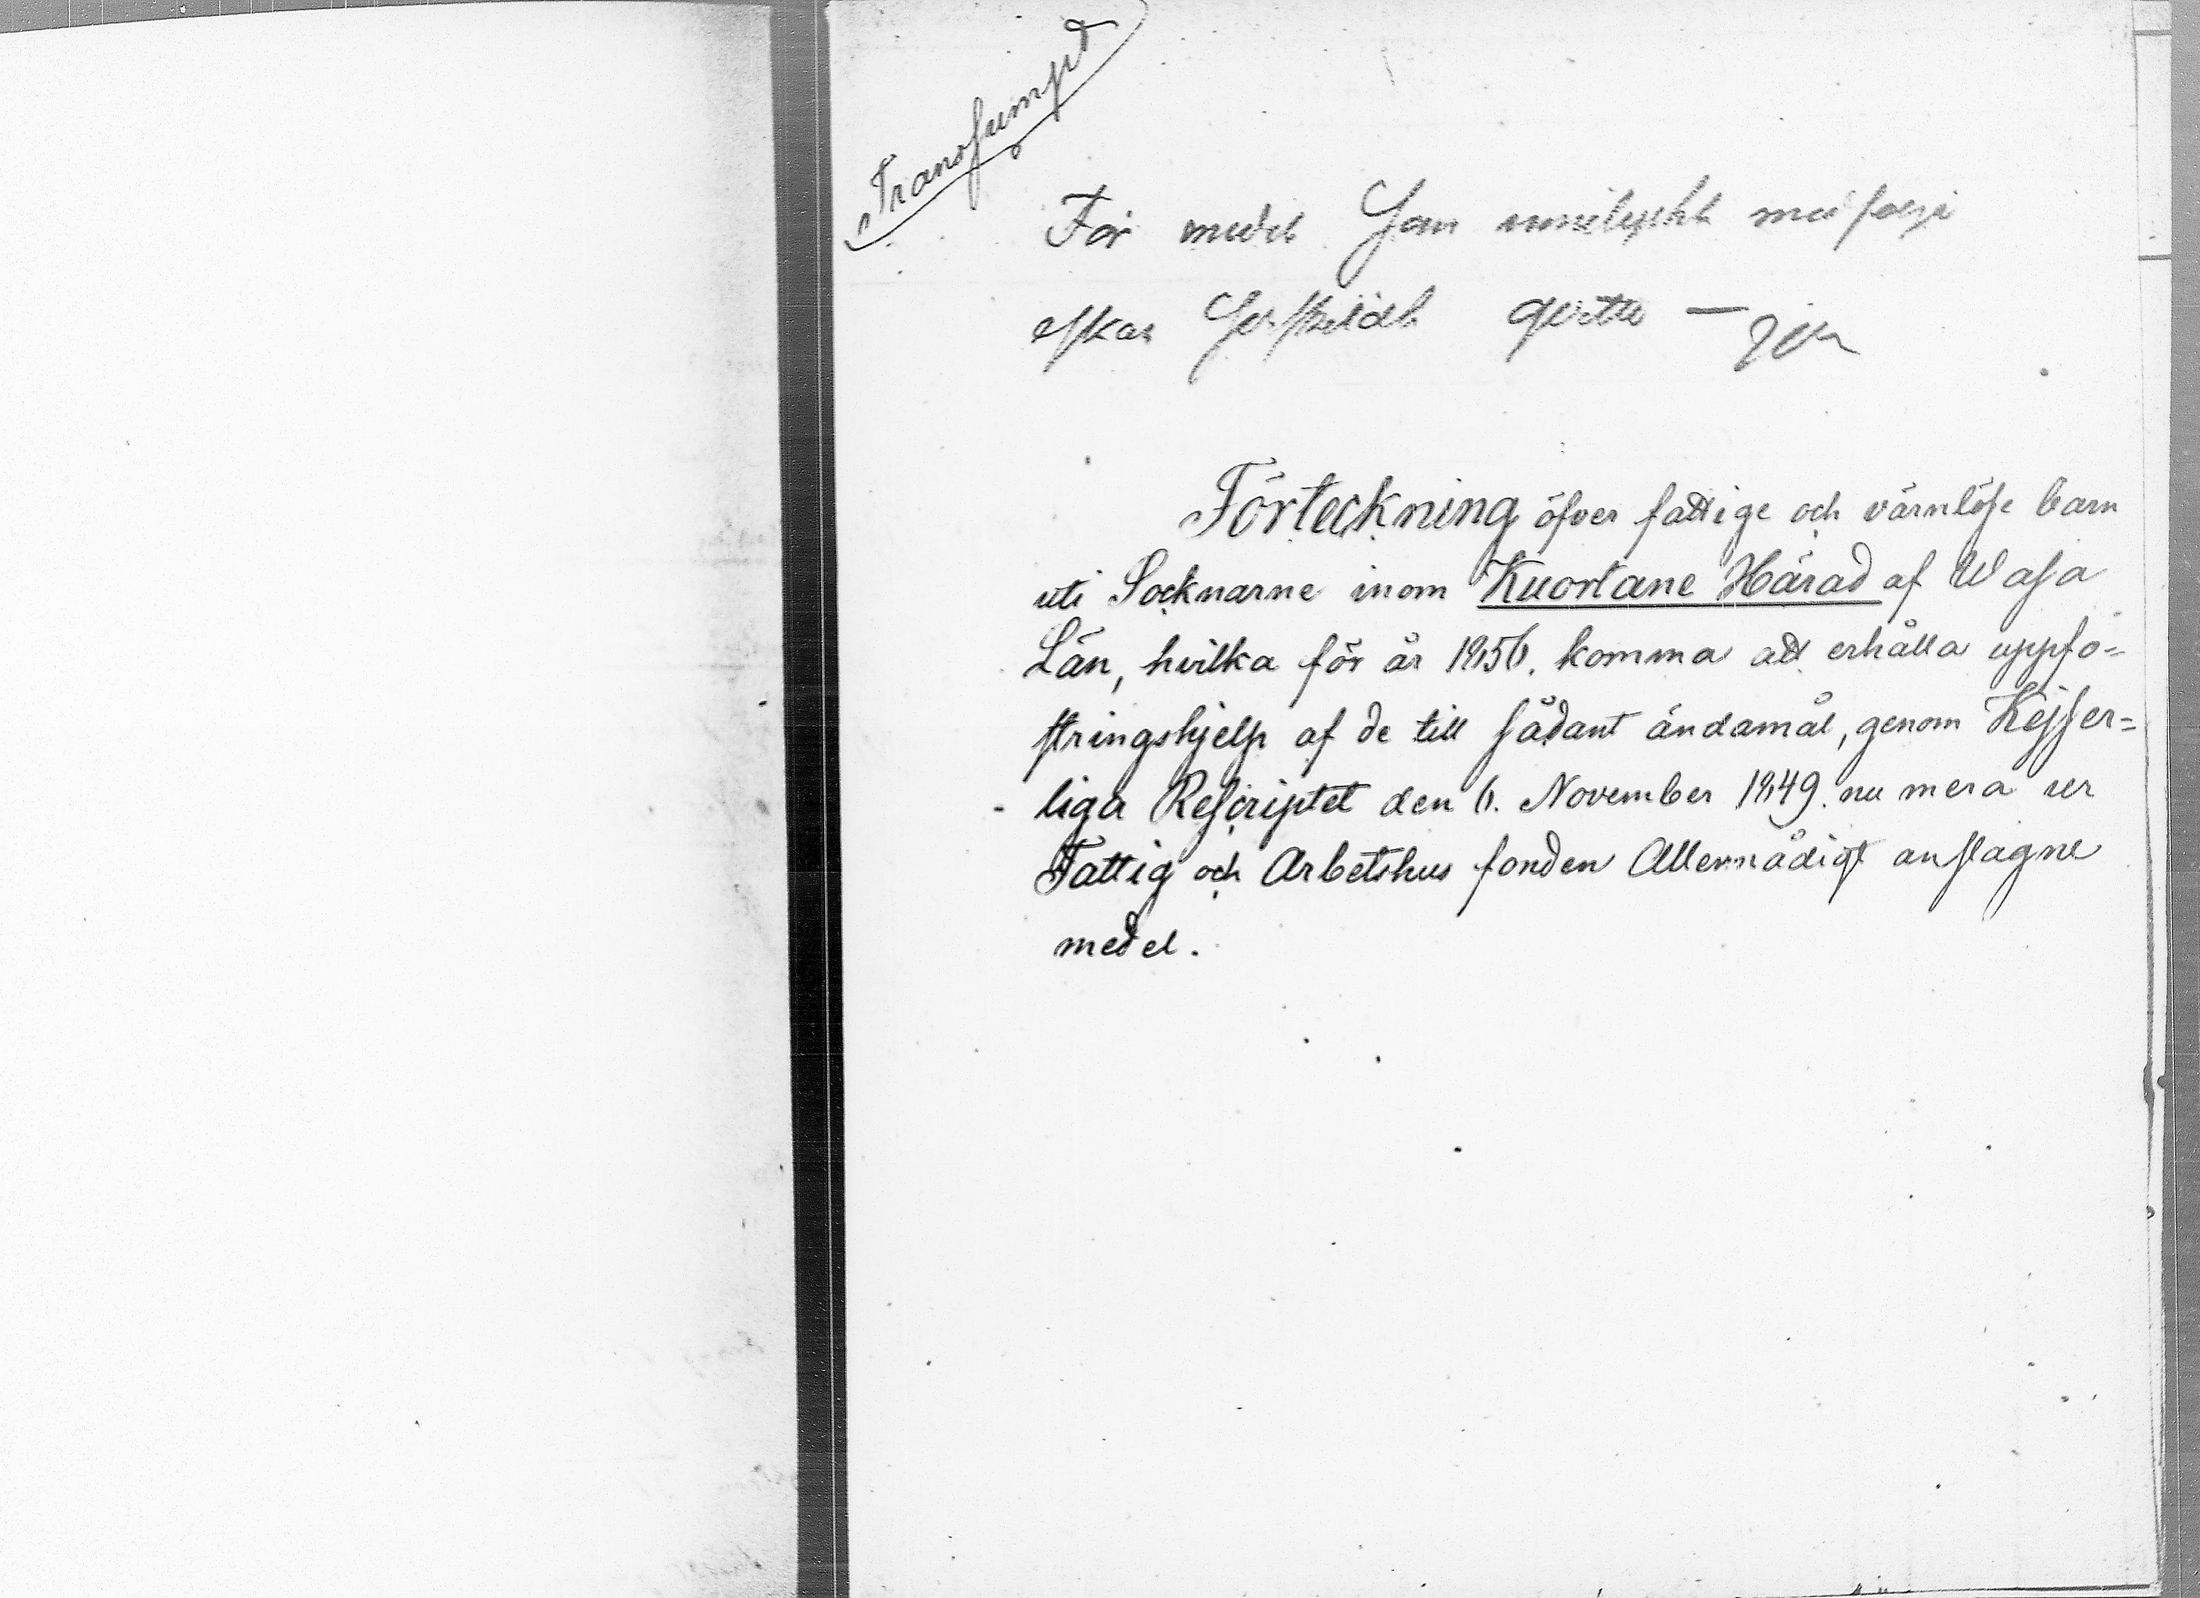 Transsumpt
För
Förteckning öfver fattige och värnlöse barn
uti Socknarne inom Kuortane Härad af Wasa
Län, hvilka för år 1856. komma att erhålla uppfo=
stringshjelp af de till sådant ändamål, genom Kejser=
liga Rescriptet den 6. November 1849. nu mera ur
Fattig och Arbetshus fonden Allernådigst anslagne
medel.